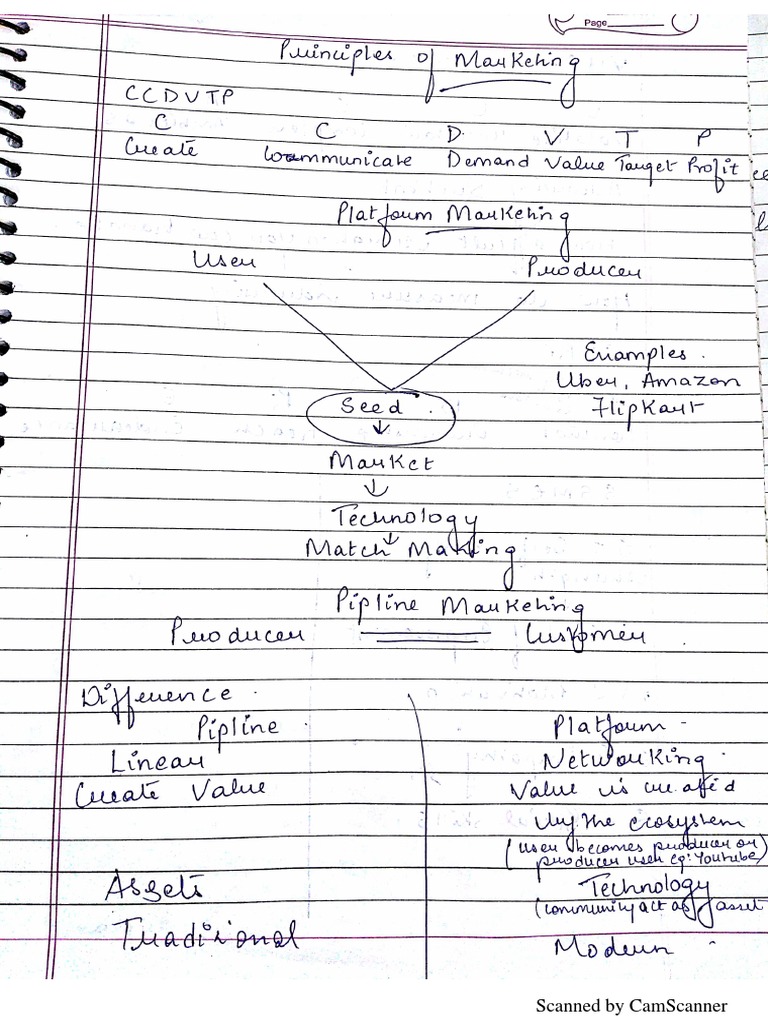 Page
Principles of Marketing
CCDVTP
C C D. V T P
Create Communicate Demand Value Target Profit
Platform Marketing
User Producer
Examples.
Uber, Amazon
Seed. Flipkart
Market
Technology
Match Making
Pipline Marketing
Producer Customer
Difference.
Pipline Platform
Linear Networking
Create Value Value is created
by the ecosystem
(user becomes producer or
producer user eg: Youtube)
Assets Technology
(community act as asset
Tradisonal Modern
Scanned by CamScanner